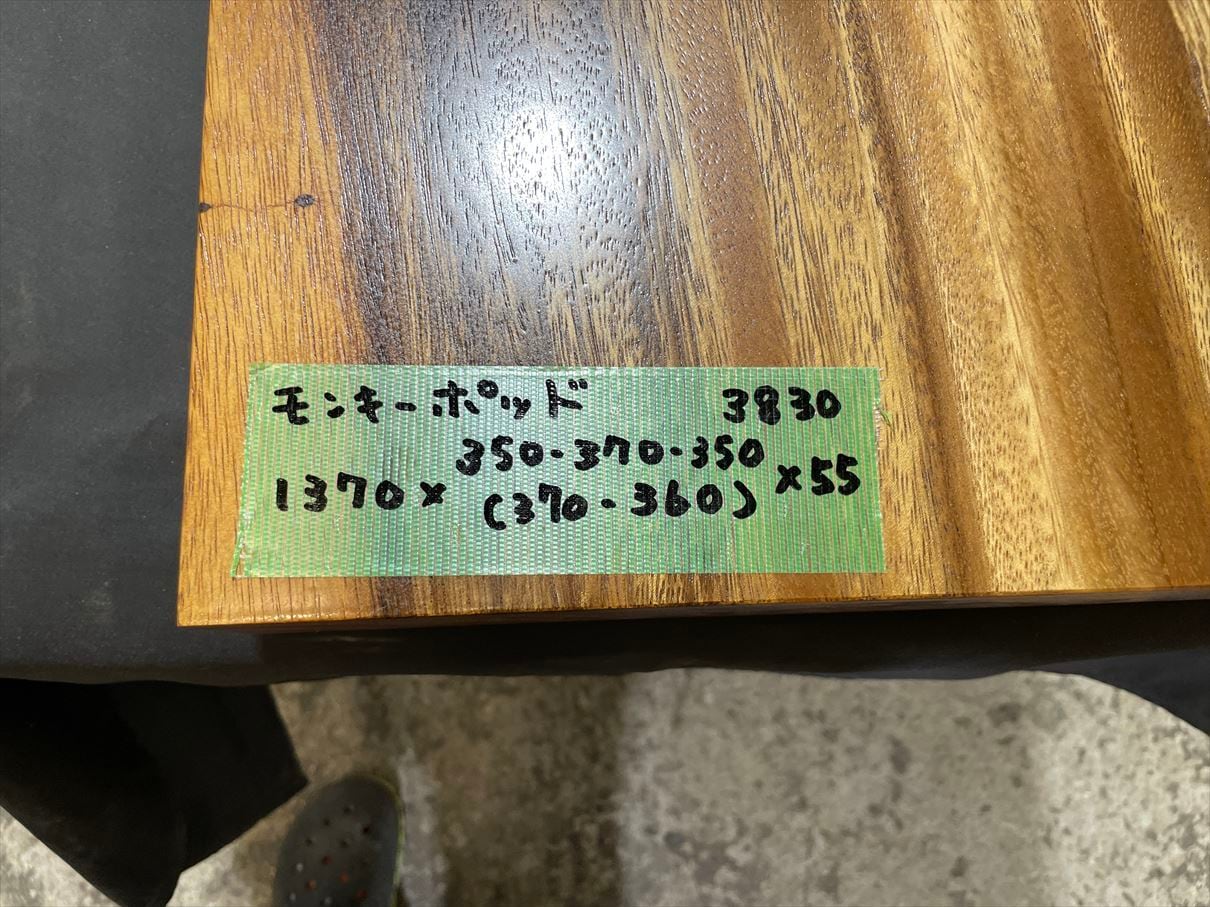 モンキーポッド 3830
350-370-350
1370× (370-360) ×55